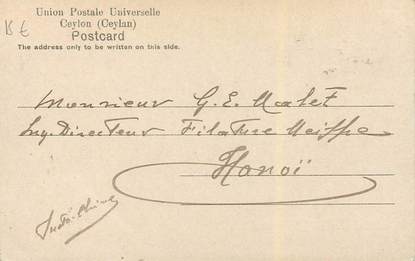 15 €
Union Postale Universelle
Ceylon (Ceylan)
Postcard
The address only to be written on this side.
Monsieur G. E. Malet
Ing. Directeur Filature Meiffre
Hanoï
Indo-Chine